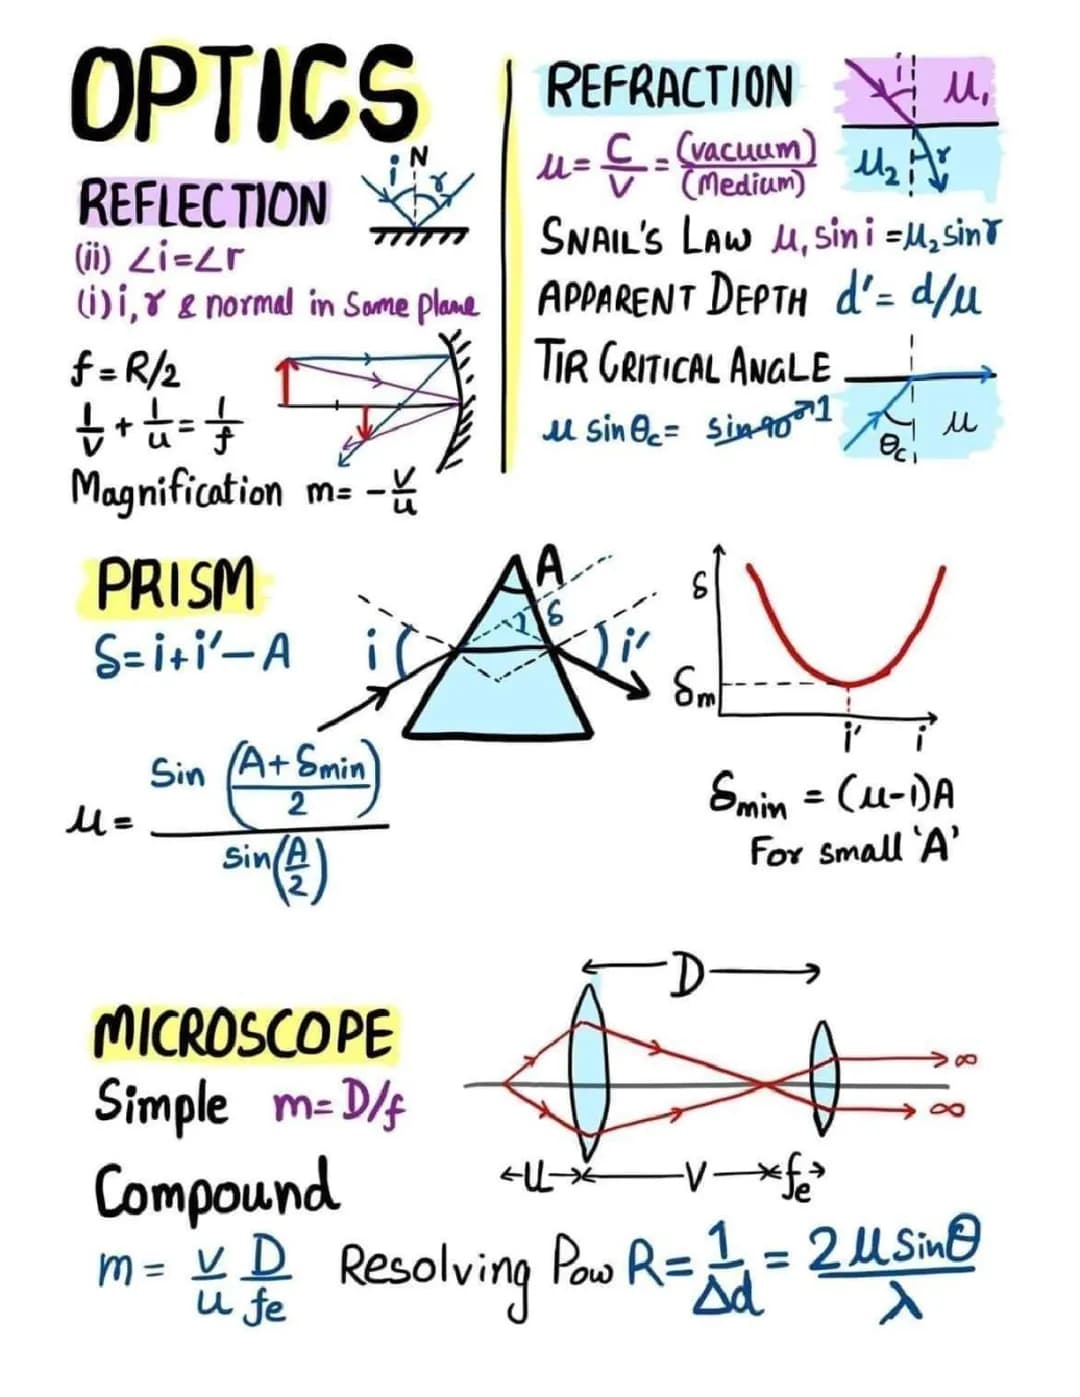 OPTICS
REFLECTION
i N r
(ii) ∠i=∠r
(i) i, r & normal in Same plane
f = R/2
1/v + 1/u = 1/f
Magnification m= -v/u
REFRACTION
i μ₁
μ₂ r
μ= C/V = (vacuum)/(Medium)
SNAIL'S LAW μ₁ sin i = μ₂ sin r
APPARENT DEPTH d'= d/μ
TIR CRITICAL ANGLE
μ sin θc = sin 90° 1
θc μ
PRISM
δ= i+i'-A
A
δ
i i'
μ= Sin (A+δmin/2) / Sin(A/2)
δ
δm
i' i
δmin = (μ-1)A
For small 'A'
MICROSCOPE
Simple m= D/f
Compound
m= v/u D/fe Resolving Pow R= 1/Δd = 2μSinθ/λ
D
∞
∞
U V fe